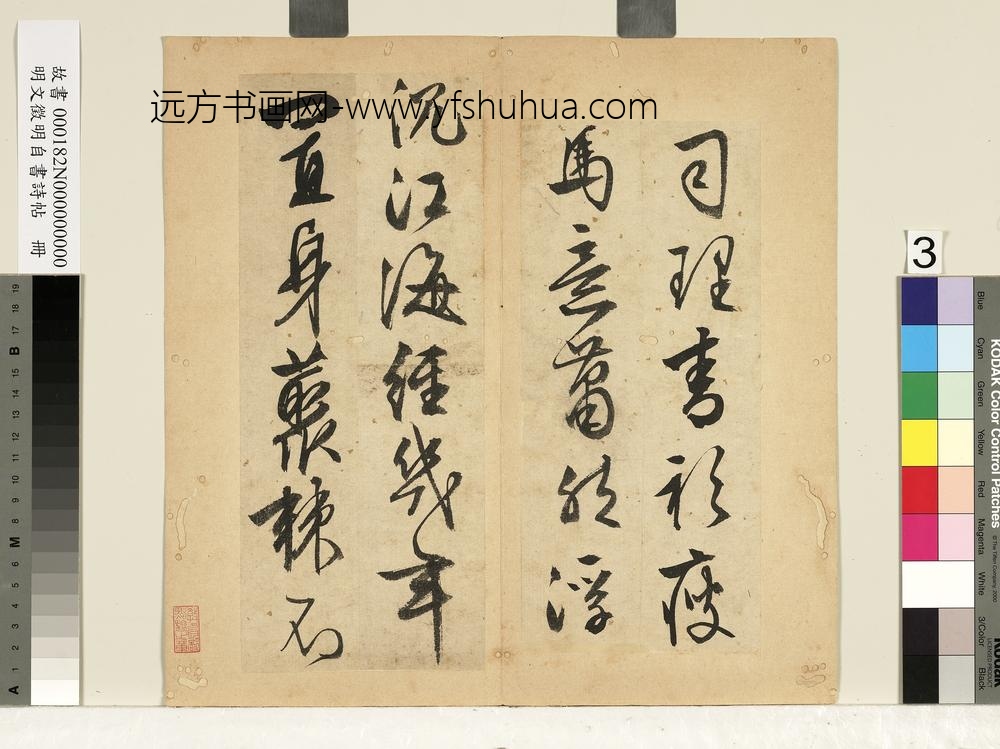 司理青衫瘦
馬意蕭然浮
沉江海經幾年
置身叢棘不
远方书画网-www.yfshuhua.com
故書 000182N000000000
明文徵明自書詩帖 冊
3
KODAK Color Control Patches
Blue
Cyan
Green
Yellow
Red
Magenta
White
3/Color
Black
Kodak
LICENSED PRODUCT
© The Tiffen Company, 2000
A 1 2 3 4 5 6 M 8 9 10 11 12 13 14 15 B 17 18 19